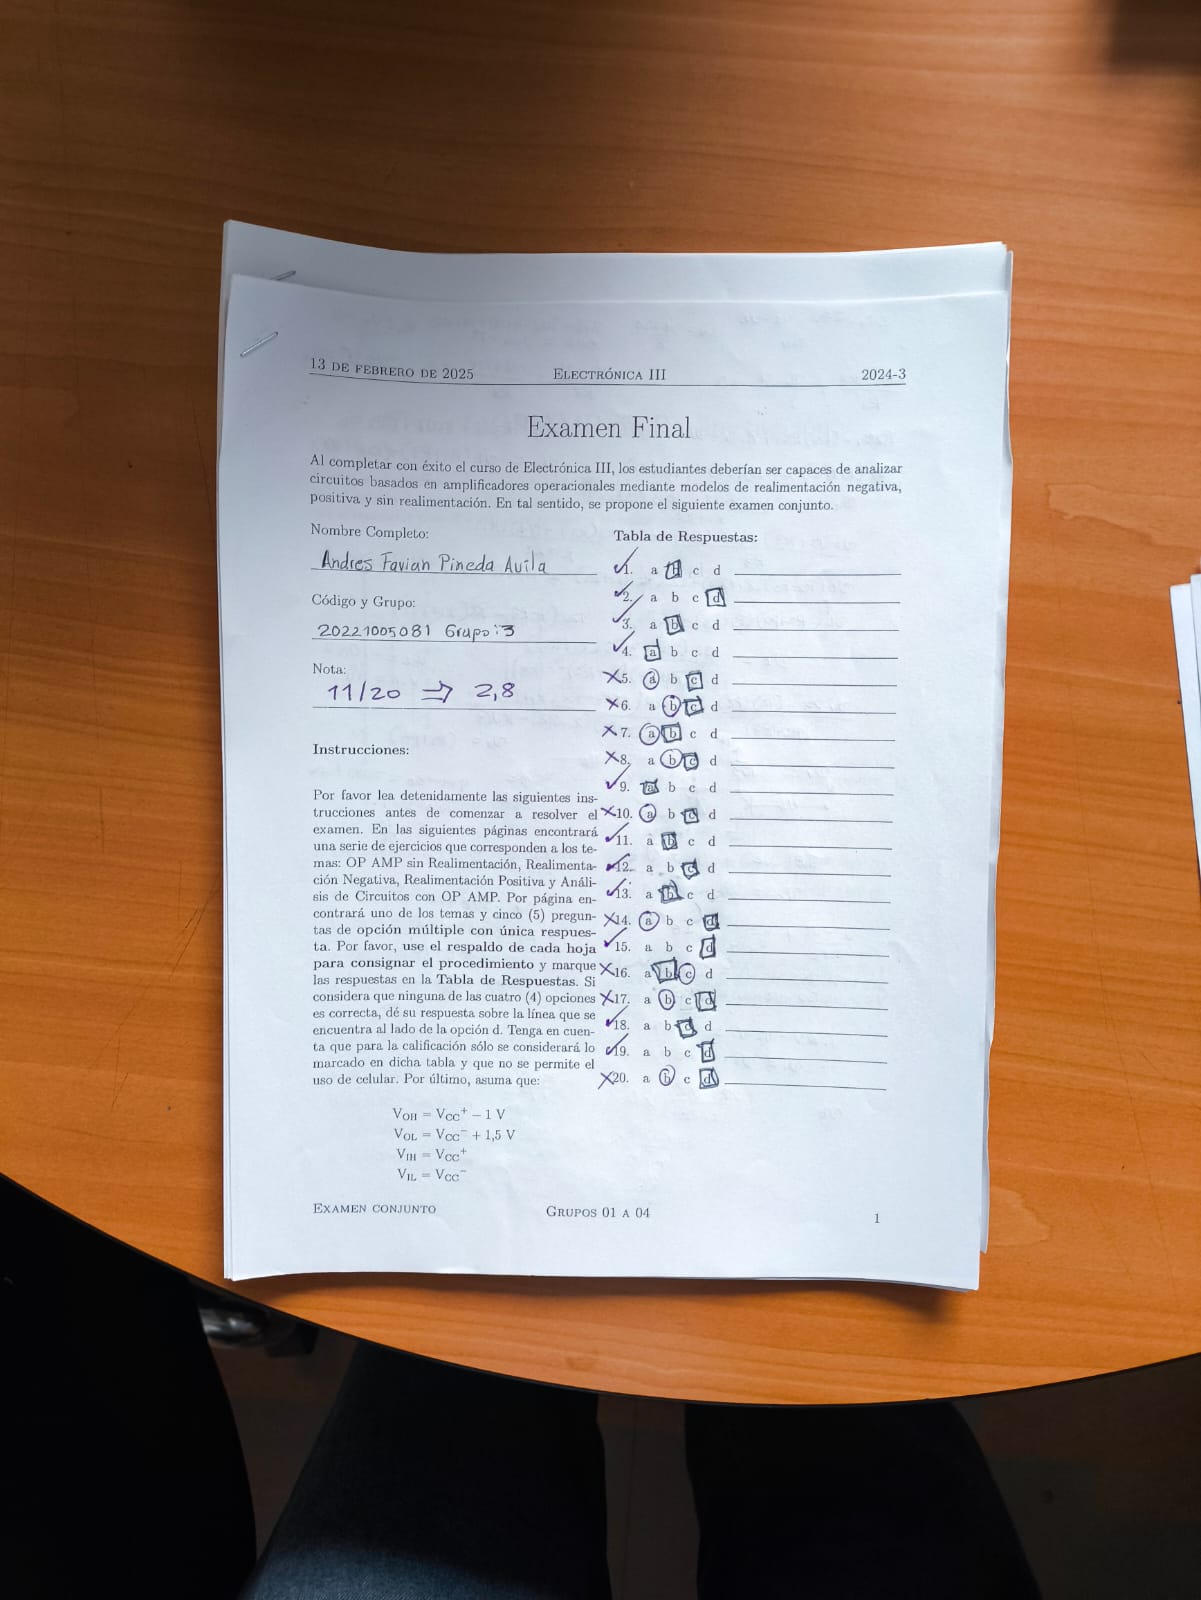 13 DE FEBRERO DE 2025 ELECTRÓNICA III 2024-3
Examen Final
Al completar con éxito el curso de Electrónica III, los estudiantes deberían ser capaces de analizar
circuitos basados en amplificadores operacionales mediante modelos de realimentación negativa,
positiva y sin realimentación. En tal sentido, se propone el siguiente examen conjunto.
Nombre Completo:
Andres Favian Pineda Avila
Código y Grupo:
20221005081 Grupo: 3
Nota:
11/20 ⇒ 2,8
Instrucciones:
Por favor lea detenidamente las siguientes ins-
trucciones antes de comenzar a resolver el
examen. En las siguientes páginas encontrará
una serie de ejercicios que corresponden a los te-
mas: OP AMP sin Realimentación, Realimenta-
ción Negativa, Realimentación Positiva y Análi-
sis de Circuitos con OP AMP. Por página en-
contrará uno de los temas y cinco (5) pregun-
tas de opción múltiple con única respues-
ta. Por favor, use el respaldo de cada hoja
para consignar el procedimiento y marque
las respuestas en la Tabla de Respuestas. Si
considera que ninguna de las cuatro (4) opciones
es correcta, dé su respuesta sobre la línea que se
encuentra al lado de la opción d. Tenga en cuen-
ta que para la calificación sólo se considerará lo
marcado en dicha tabla y que no se permite el
uso de celular. Por último, asuma que:
VOH = VCC+ − 1 V
VOL = VCC− + 1,5 V
VIH = VCC+
VIL = VCC−
Tabla de Respuestas:
✓1. a b c d
✓2. a b c d
✓3. a b c d
✓4. a b c d
✗5. a b c d
✗6. a b c d
✗7. a b c d
✗8. a b c d
✓9. a b c d
✗10. a b c d
✓11. a b c d
✓12. a b c d
✓13. a b c d
✗14. a b c d
✓15. a b c d
✗16. a b c d
✗17. a b c d
✓18. a b c d
✓19. a b c d
✗20. a b c d
EXAMEN CONJUNTO GRUPOS 01 A 04 1